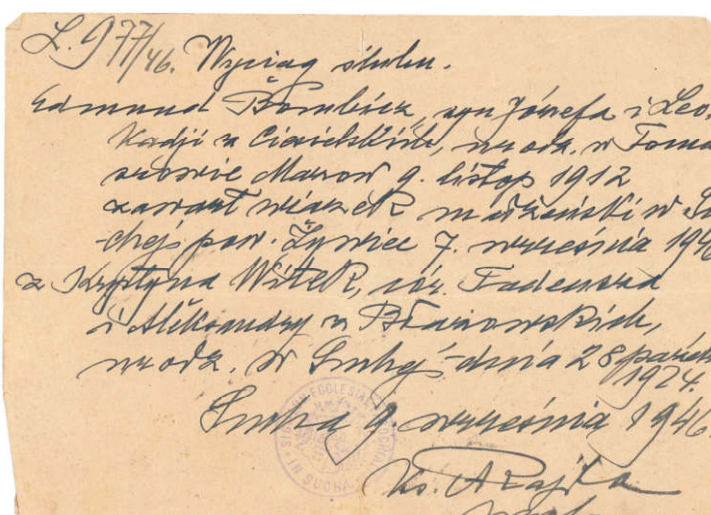 L. 977/46. Wyciąg ślubu.
Edmund syn Józefa i Leo-
kadji z urodz. w Toma
szowie Mazow 9. listop 1912
zawarł związek małżeński w Su
chej pow. Żywiec 7. września 194
z Krystyna Witek, cór. Tadeusza
i Aleksandry z Błazowskich,
urodz. w Suchej dnia 28 paźdz
1924.
Sucha 9. września 1946.
Ks.
ECCLESIAE
IN SUCHA